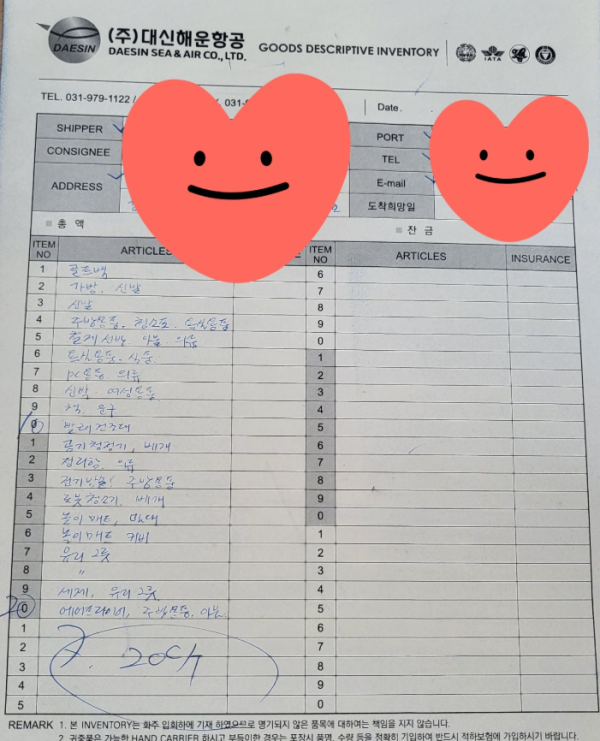 DAESIN
(주)대신해운항공
DAESIN SEA & AIR CO., LTD.
GOODS DESCRIPTIVE INVENTORY
IATA
TEL. 031-979-1122 /
Date.
SHIPPER
PORT
CONSIGNEE
TEL
ADDRESS
E-mail
도착희망일
총 액
잔 금
ITEM NO ARTICLES ITEM NO ARTICLES INSURANCE
1 골프백 6
2 가방, 신발 7
3 신발 8
4 주방용품, 청소포, 욕실용품 9
5 이불 의류 0
6 욕실용품, 식품 1
7 PC용품 의류 2
8 신발, 여성용품 3
9 책, 문구 4
10 빨래건조대 5
1 공기청정기, 베개 6
2 정리함, 의류 7
3 주방용품 8
4 로봇청소기, 베개 9
5 놀이매트, 0
6 놀이매트 커버 1
7 유리그릇 2
8 〃 3
9 세제, 유리그릇 4
20 에어프라이어, 주방용품, 이불 5
1 6
2 7
3 8
4 9
5 0
20C/T
REMARK 1. 본 INVENTORY는 화주 입회하에 기재 하였으므로 명기되지 않은 품목에 대하여는 책임을 지지 않습니다.
2. 귀중품은 가능한 HAND CARRIER 하시고 부득이한 경우는 포장시 품명, 수량 등을 정확히 기입하여 반드시 적하보험에 가입하시기 바랍니다.